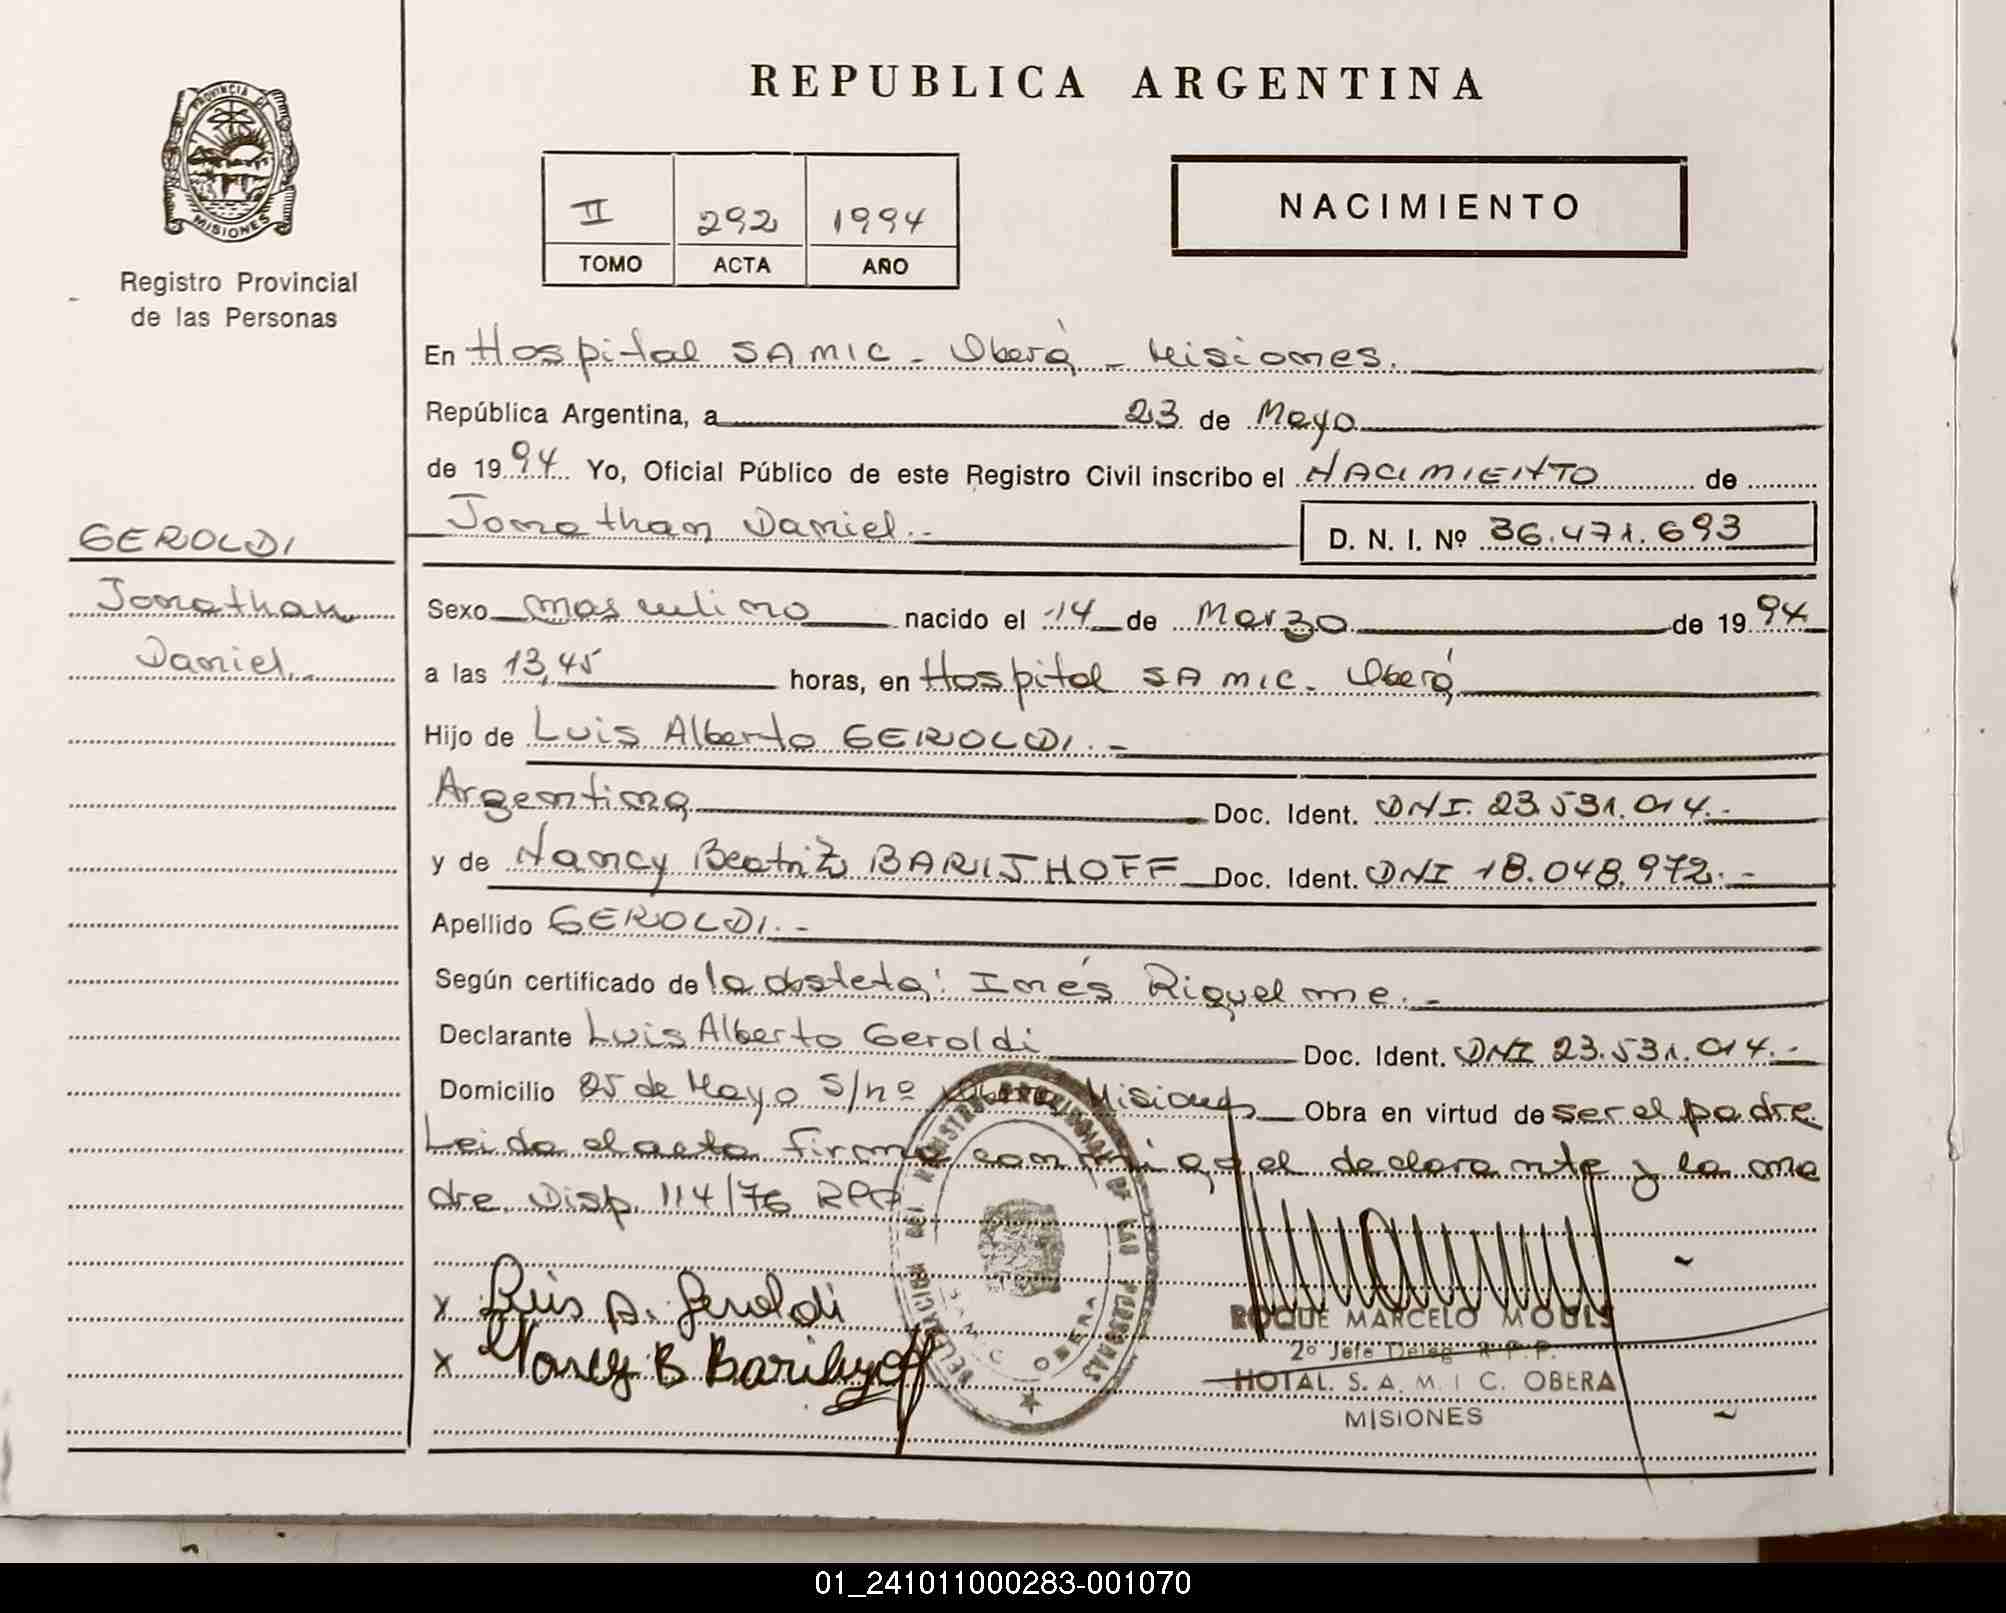 REPUBLICA ARGENTINA
PROVINCIA DE
MISIONES
Registro Provincial
de las Personas
II 292 1994
TOMO ACTA AÑO
NACIMIENTO
En Hospital SAMIC - Oberá - Misiones.
República Argentina, a 23 de Mayo
de 1994 Yo, Oficial Público de este Registro Civil inscribo el NACIMIENTO de
GEROLDI
Jonathan Daniel.- D. N. I. Nº 36.471.693
Jonathan
Daniel.-
Sexo masculino nacido el 14 de Marzo de 1994
a las 13,45 horas, en Hospital SAMIC. Oberá
Hijo de Luis Alberto GEROLDI.-
Argentina Doc. Ident. DNI. 23.531.014.-
y de Nancy Beatriz BARIJHOFF Doc. Ident. DNI 18.048.972.-
Apellido GEROLDI.-
Según certificado de la obsteta: Inés Riquelme.-
Declarante Luis Alberto Geroldi Doc. Ident. DNI 23.531.014.-
Domicilio 25 de Mayo S/nº Oberá Misiones Obra en virtud de ser el padre
Leida el acta firma conmigo el declarante y la ma
dre. Disp. 114/76 RPP
x Luis A. Geroldi
x Nancy B
DELEGACION DEL REGISTRO PROVINCIAL DE LAS PERSONAS
OBERA
ROQUE MARCELO MOULS
2º Jefe Deleg. R.P.P.
HOTAL. S. A. M. I C. OBERA
MISIONES
01_241011000283-001070